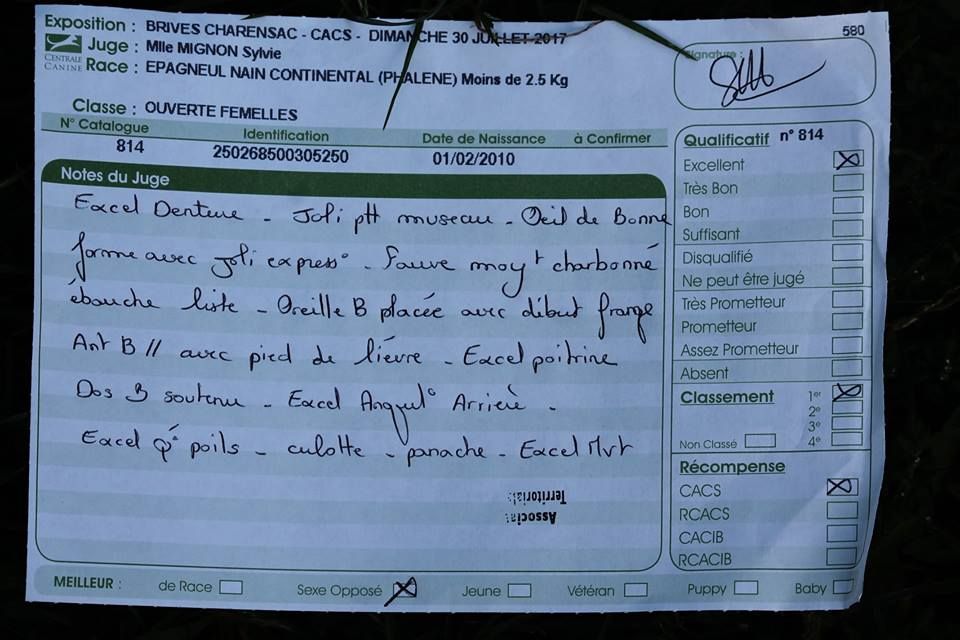 Exposition : BRIVES CHARENSAC - CACS - DIMANCHE 30 JUILLET 2017
580
Juge : Mlle MIGNON Sylvie
CENTRALE CANINE
Race : EPAGNEUL NAIN CONTINENTAL (PHALENE) Moins de 2.5 Kg
Signature :
Classe : OUVERTE FEMELLES
N° Catalogue Identification Date de Naissance à Confirmer
814 250268500305250 01/02/2010
Notes du Juge
Excel Denture - Joli ptt museau - Oeil de Bonne
forme avec joli express° - Fauve moyt charbonné
ébauche liste - Oreille B placée avec début frange
Ant B // avec pied de lièvre - Excel poitrine
Dos B soutenu - Excel Angul° Arrière -
Excel Qté poils - culotte - panache - Excel Mvt
Associat
Territorial
Qualificatif n° 814
Excellent
Très Bon
Bon
Suffisant
Disqualifié
Ne peut être jugé
Très Prometteur
Prometteur
Assez Prometteur
Absent
Classement 1er
2e
3e
Non Classé 4e
Récompense
CACS
RCACS
CACIB
RCACIB
MEILLEUR : de Race Sexe Opposé Jeune Vétéran Puppy Baby